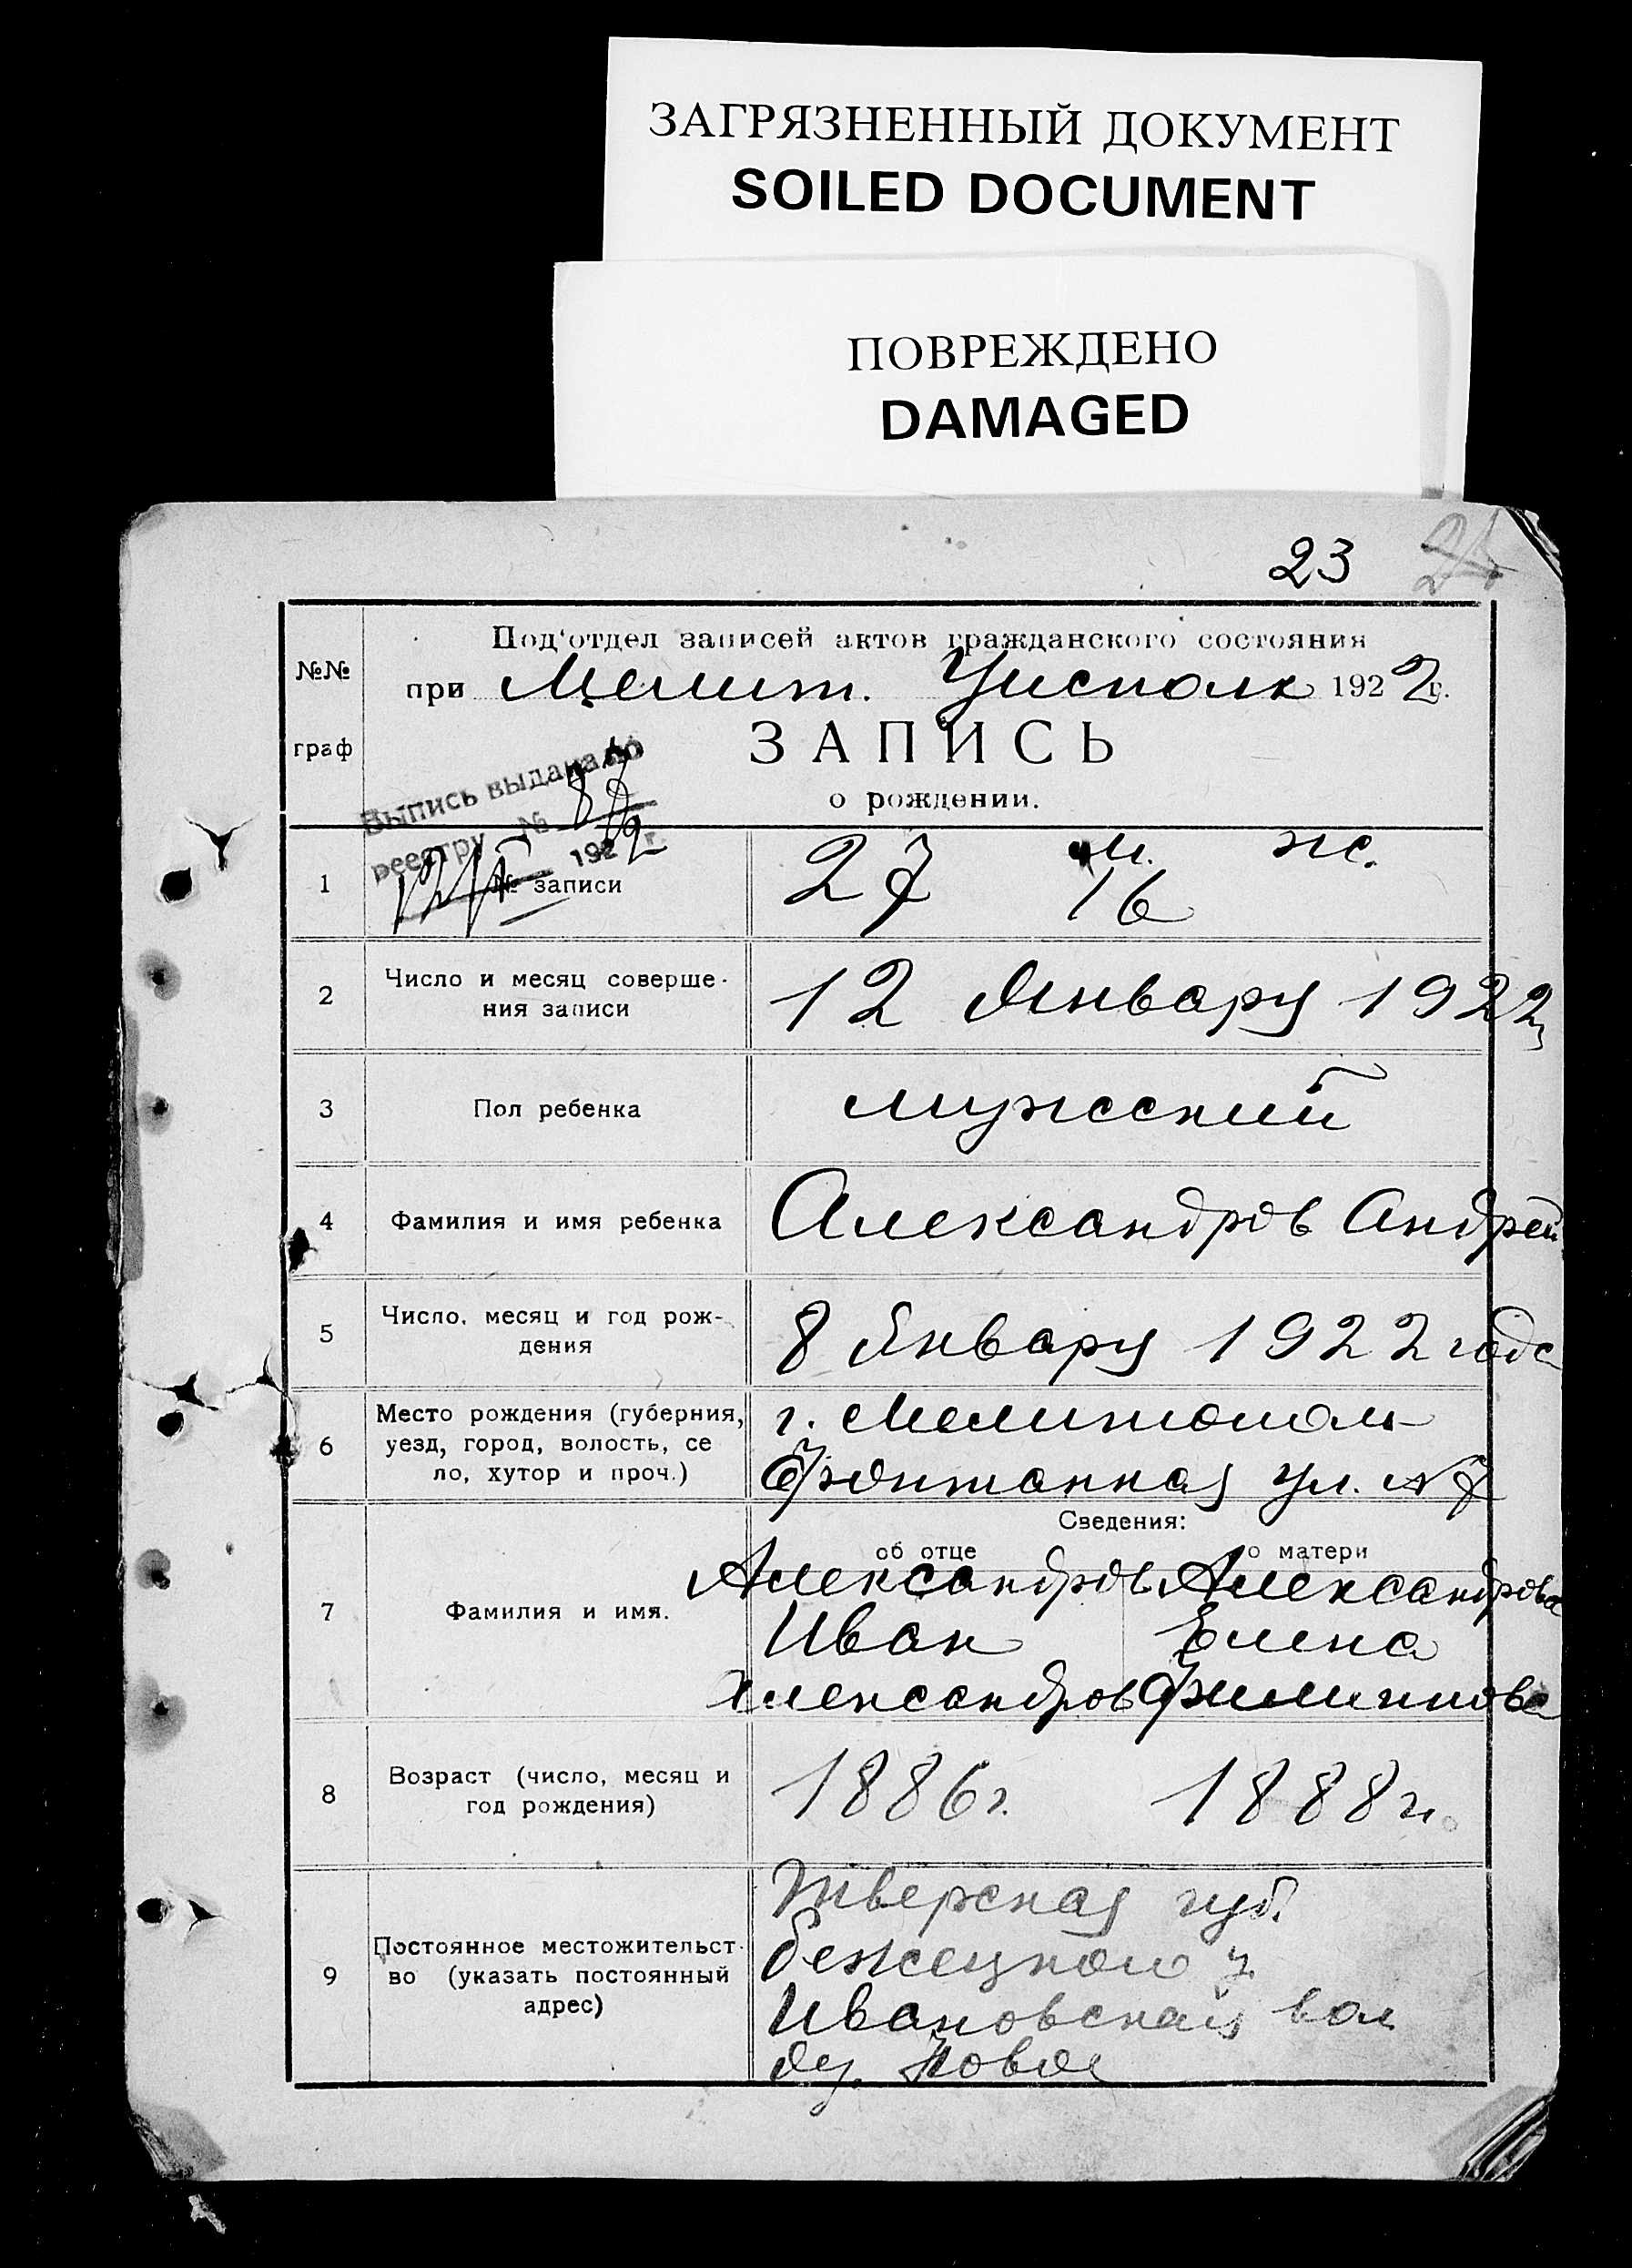 ЗАГРЯЗНЕННЫЙ ДОКУМЕНТ
SOILED DOCUMENT
ПОВРЕЖДЕНО
DAMAGED
23
№№
граф
Под'отдел записей актов гражданского состояния
при Мелит. Уисполк 1922 г.
ЗАПИСЬ
о рождении.
Выпись выдана по
реестру № 192 2 г.
1 № записи 27 м. ж.
16
2 Число и месяц соверше-
ния записи
12 Январу 1922
3 Пол ребенка мужский
4 Фамилия и имя ребенка Александров Андрей
5 Число, месяц и год рож-
дения
8 Январу 1922 года
6 Место рождения (губерния,
уезд, город, волость, се
ло, хутор и проч.)
г. Мелитополь
Фонтанная ул. № 7
Сведения:
об отце о матери
7 Фамилия и имя.
Александров Александрова
Иван Елена
Александров Филиппова
8 Возраст (число, месяц и
год рождения)
1886 г. 1888 г.
9 Постоянное местожительст-
во (указать постоянный
адрес)
Тверская губ.
Бежецкого у.
Ивановская вол
де. Новое